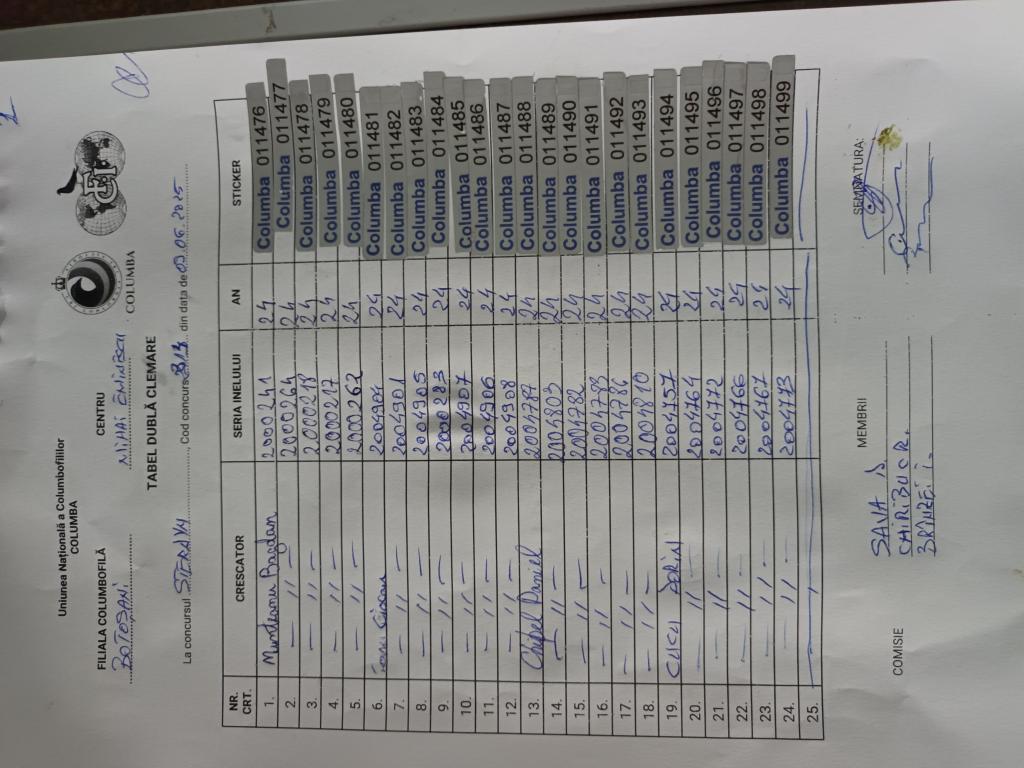 1
Uniunea Națională a Columbofililor
COLUMBA
FILIALA COLUMBOFILĂ CENTRU
BOTOȘANI MIHAI EMINESCU
COLUMBA
FCI
TABEL DUBLĂ CLEMARE
La concursul, Cod concurs din data de 03.05.2025
NR. CRT. CRESCATOR SERIA INELULUI AN STICKER
1. Munteanu Bogdan 2000241 24 Columba 011476
2. — // — 2000264 24 Columba 011477
3. — // — 2000218 24 Columba 011478
4. — // — 2000217 24 Columba 011479
5. — // — 2000262 24 Columba 011480
6. 2004904 24 Columba 011481
7. — // — 2004901 24 Columba 011482
8. — // — 2004905 24 Columba 011483
9. — // — 2000283 24 Columba 011484
10. — // — 2004907 24 Columba 011485
11. — // — 2004906 24 Columba 011486
12. — // — 2004908 24 Columba 011487
13. Chipel Daniel 2004787 24 Columba 011488
14. — // — 2004803 24 Columba 011489
15. — // — 2004782 24 Columba 011490
16. — // — 2004798 24 Columba 011491
17. — // — 2004786 24 Columba 011492
18. — // — 2004810 24 Columba 011493
19. CUCU SORIN 2004757 24 Columba 011494
20. — // — 2004764 24 Columba 011495
21. — // — 2004772 24 Columba 011496
22. — // — 2004766 24 Columba 011497
23. — // — 2004767 24 Columba 011498
24. — // — 2004773 24 Columba 011499
25.
COMISIE MEMBRII SEMNATURA:
SAVA D
CHIRIBUC R.
BRÎNZEI I.